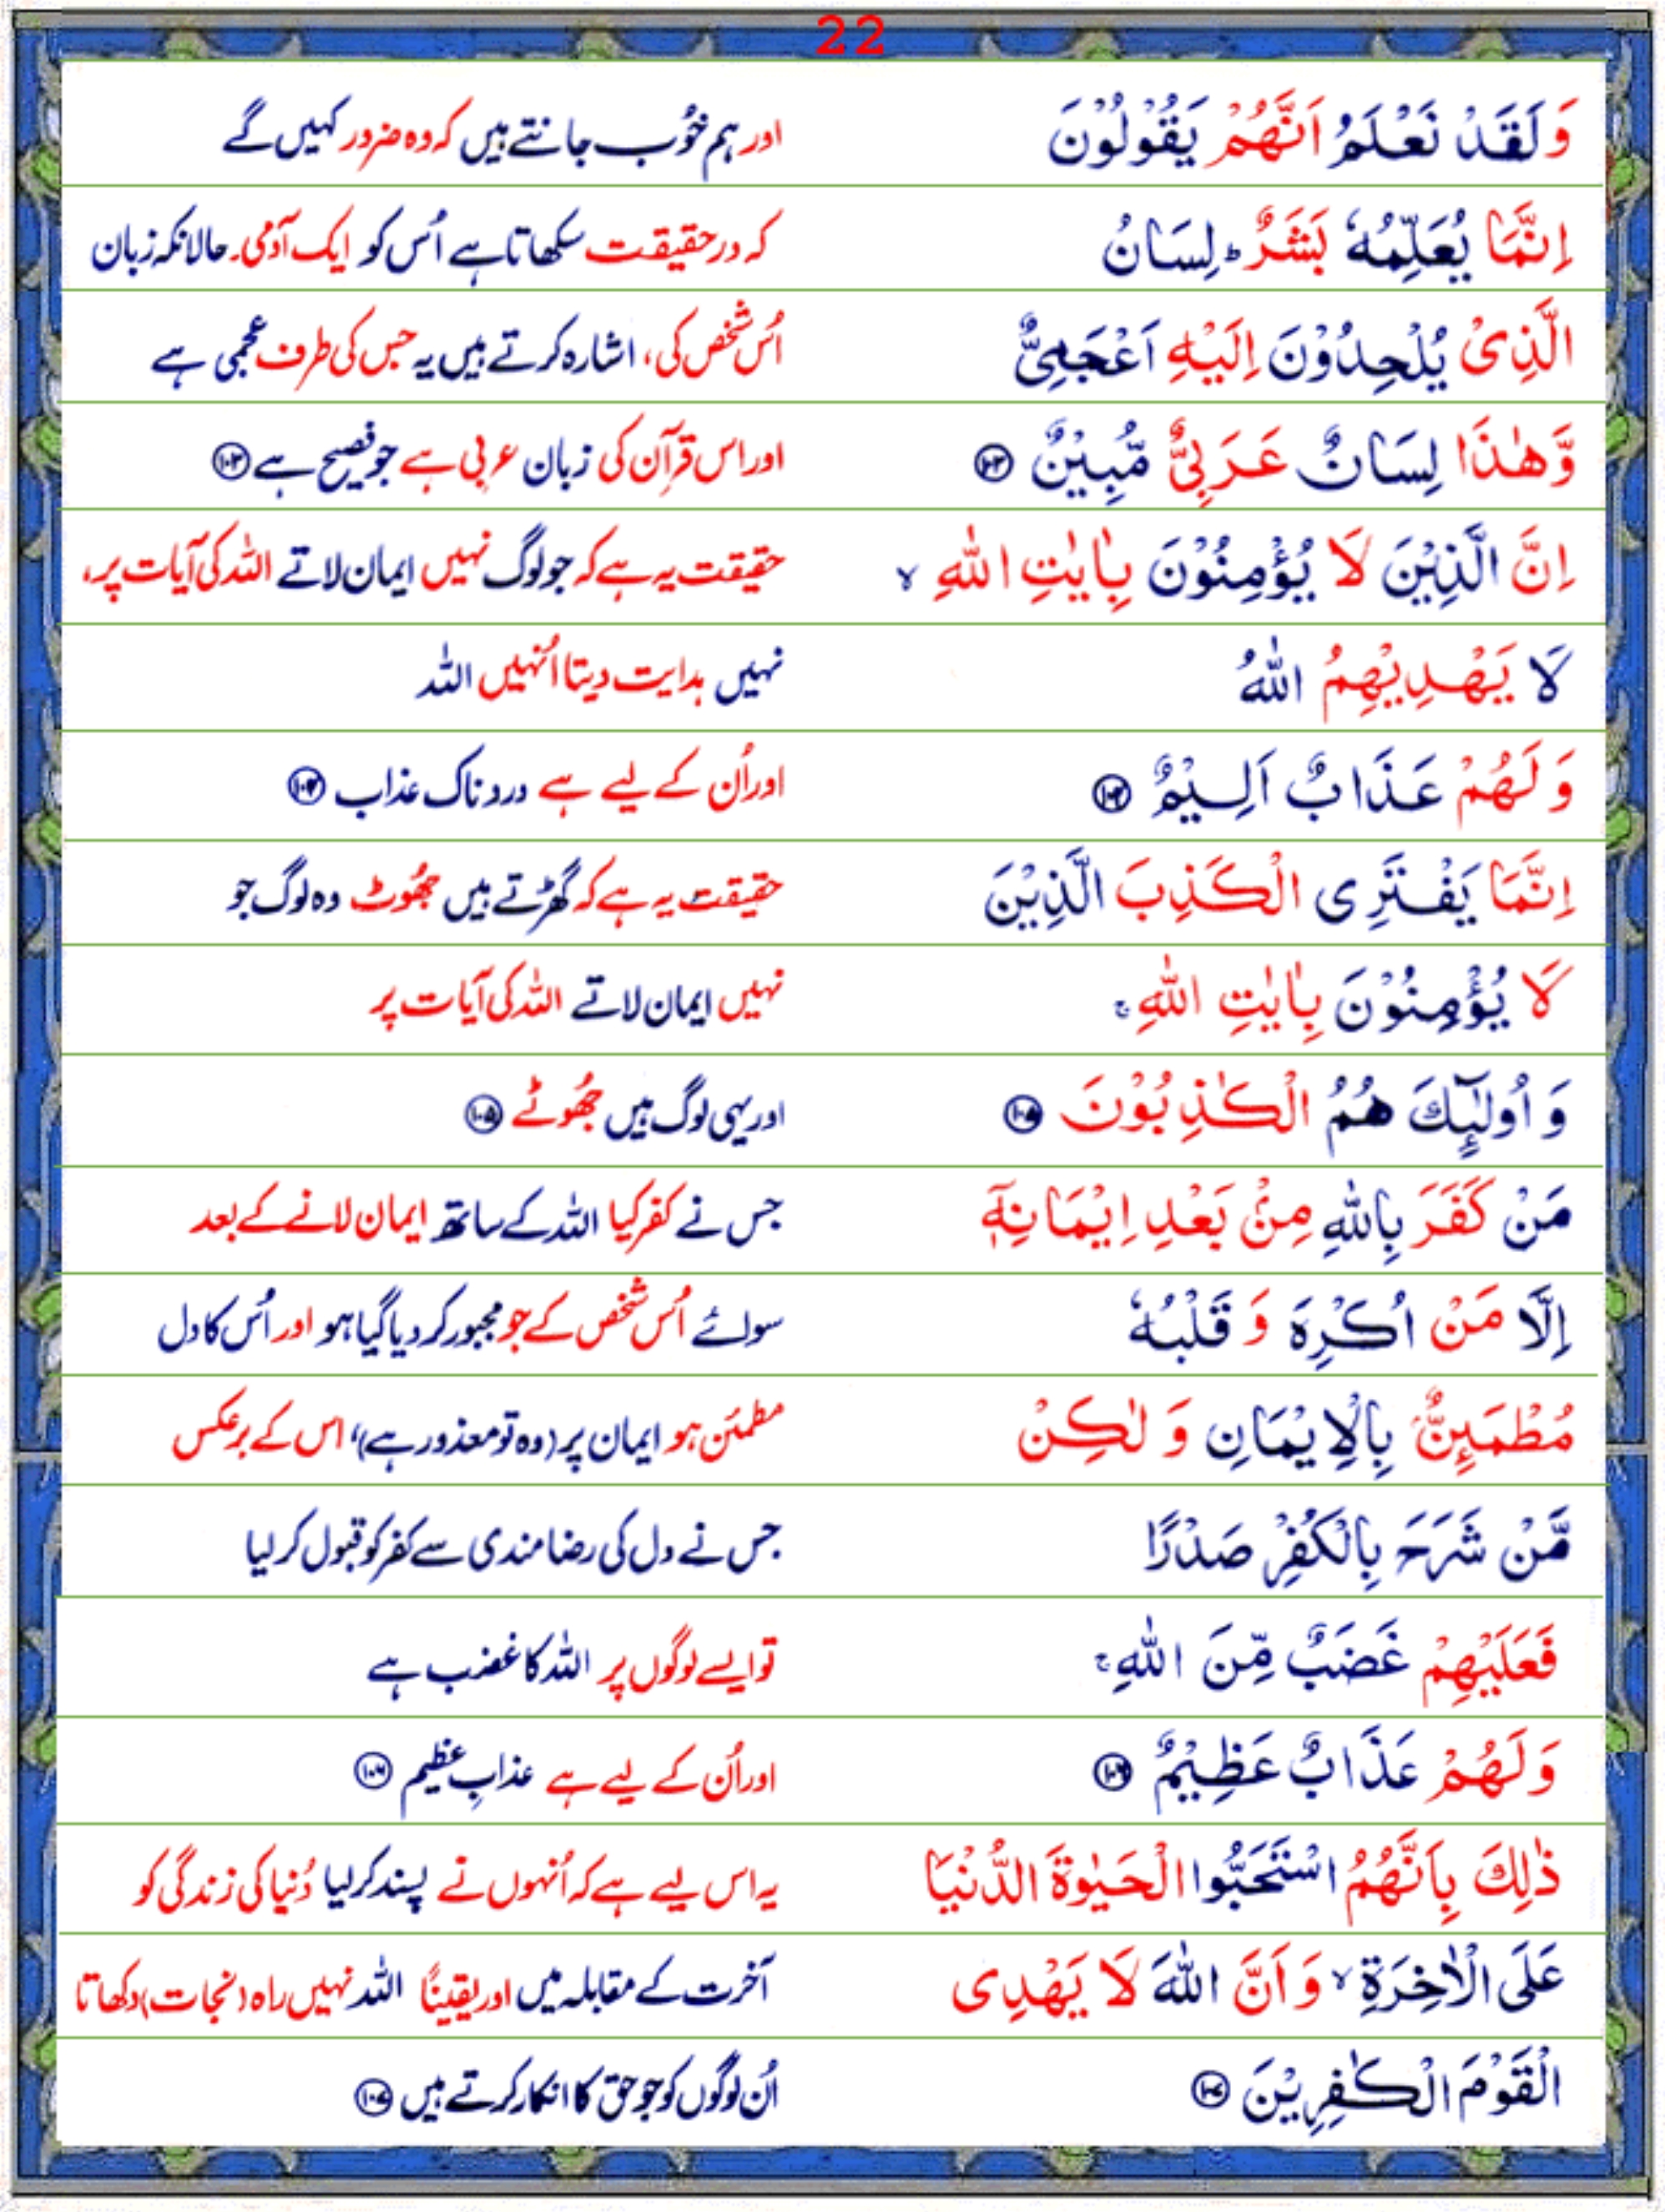 22
وَلَقَدْ نَعْلَمُ اَنَّهُمْ يَقُوْلُوْنَ اور ہم خُوب جانتے ہیں کہ وہ ضرور کہیں گے
اِنَّمَا يُعَلِّمُهٗ بَشَرٌ ؕ لِسَانُ کہ درحقیقت سکھاتا ہے اُس کو ایک آدمی۔ حالانکہ زبان
الَّذِىْ يُلْحِدُوْنَ اِلَيْهِ اَعْجَمِىٌّ اُس شخص کی، اشارہ کرتے ہیں یہ جس کی طرف عجمی ہے
وَّهٰذَا لِسَانٌ عَرَبِىٌّ مُّبِيْنٌ ﴿۱۰۳﴾ اور اس قرآن کی زبان عربی ہے جو فصیح ہے ﴿۱۰۳﴾
اِنَّ الَّذِيْنَ لَا يُؤْمِنُوْنَ بِاٰيٰتِ اللّٰهِ ۙ حقیقت یہ ہے کہ جو لوگ نہیں ایمان لاتے اللہ کی آیات پر،
لَا يَهْدِيْهِمُ اللّٰهُ نہیں ہدایت دیتا اُنہیں اللہ
وَلَهُمْ عَذَابٌ اَلِيْمٌ ﴿۱۰۴﴾ اور اُن کے لیے ہے دردناک عذاب ﴿۱۰۴﴾
اِنَّمَا يَفْتَرِى الْكَذِبَ الَّذِيْنَ حقیقت یہ ہے کہ گھڑتے ہیں جھُوٹ وہ لوگ جو
لَا يُؤْمِنُوْنَ بِاٰيٰتِ اللّٰهِ ۚ نہیں ایمان لاتے اللہ کی آیات پر
وَاُولٰٓٮِٕكَ هُمُ الْكٰذِبُوْنَ ﴿۱۰۵﴾ اور یہی لوگ ہیں جھُوٹے ﴿۱۰۵﴾
مَنْ كَفَرَ بِاللّٰهِ مِنْۢ بَعْدِ اِيْمَانِهٖۤ جس نے کفر کیا اللہ کے ساتھ ایمان لانے کے بعد
اِلَّا مَنْ اُكْرِهَ وَ قَلْبُهٗ سوائے اُس شخص کے جو مجبور کر دیا گیا ہو اور اُس کا دل
مُطْمَٮِٕنٌّۢ بِالْاِيْمَانِ وَ لٰكِنْ مطمئن ہو ایمان پر (وہ تو معذور ہے)، اس کے برعکس
مَّنْ شَرَحَ بِالْكُفْرِ صَدْرًا جس نے دل کی رضامندی سے کفر کو قبول کر لیا
فَعَلَيْهِمْ غَضَبٌ مِّنَ اللّٰهِ ۚ تو ایسے لوگوں پر اللہ کا غضب ہے
وَلَهُمْ عَذَابٌ عَظِيْمٌ ﴿۱۰۶﴾ اور اُن کے لیے ہے عذابِ عظیم ﴿۱۰۶﴾
ذٰلِكَ بِاَنَّهُمُ اسْتَحَبُّوا الْحَيٰوةَ الدُّنْيَا یہ اس لیے ہے کہ اُنہوں نے پسند کر لیا دُنیا کی زندگی کو
عَلَى الْاٰخِرَةِ ۙ وَ اَنَّ اللّٰهَ لَا يَهْدِى آخرت کے مقابلہ میں اور یقیناً اللہ نہیں راہ (نجات) دکھاتا
الْقَوْمَ الْكٰفِرِيْنَ ﴿۱۰۷﴾ اُن لوگوں کو جو حق کا انکار کرتے ہیں ﴿۱۰۷﴾